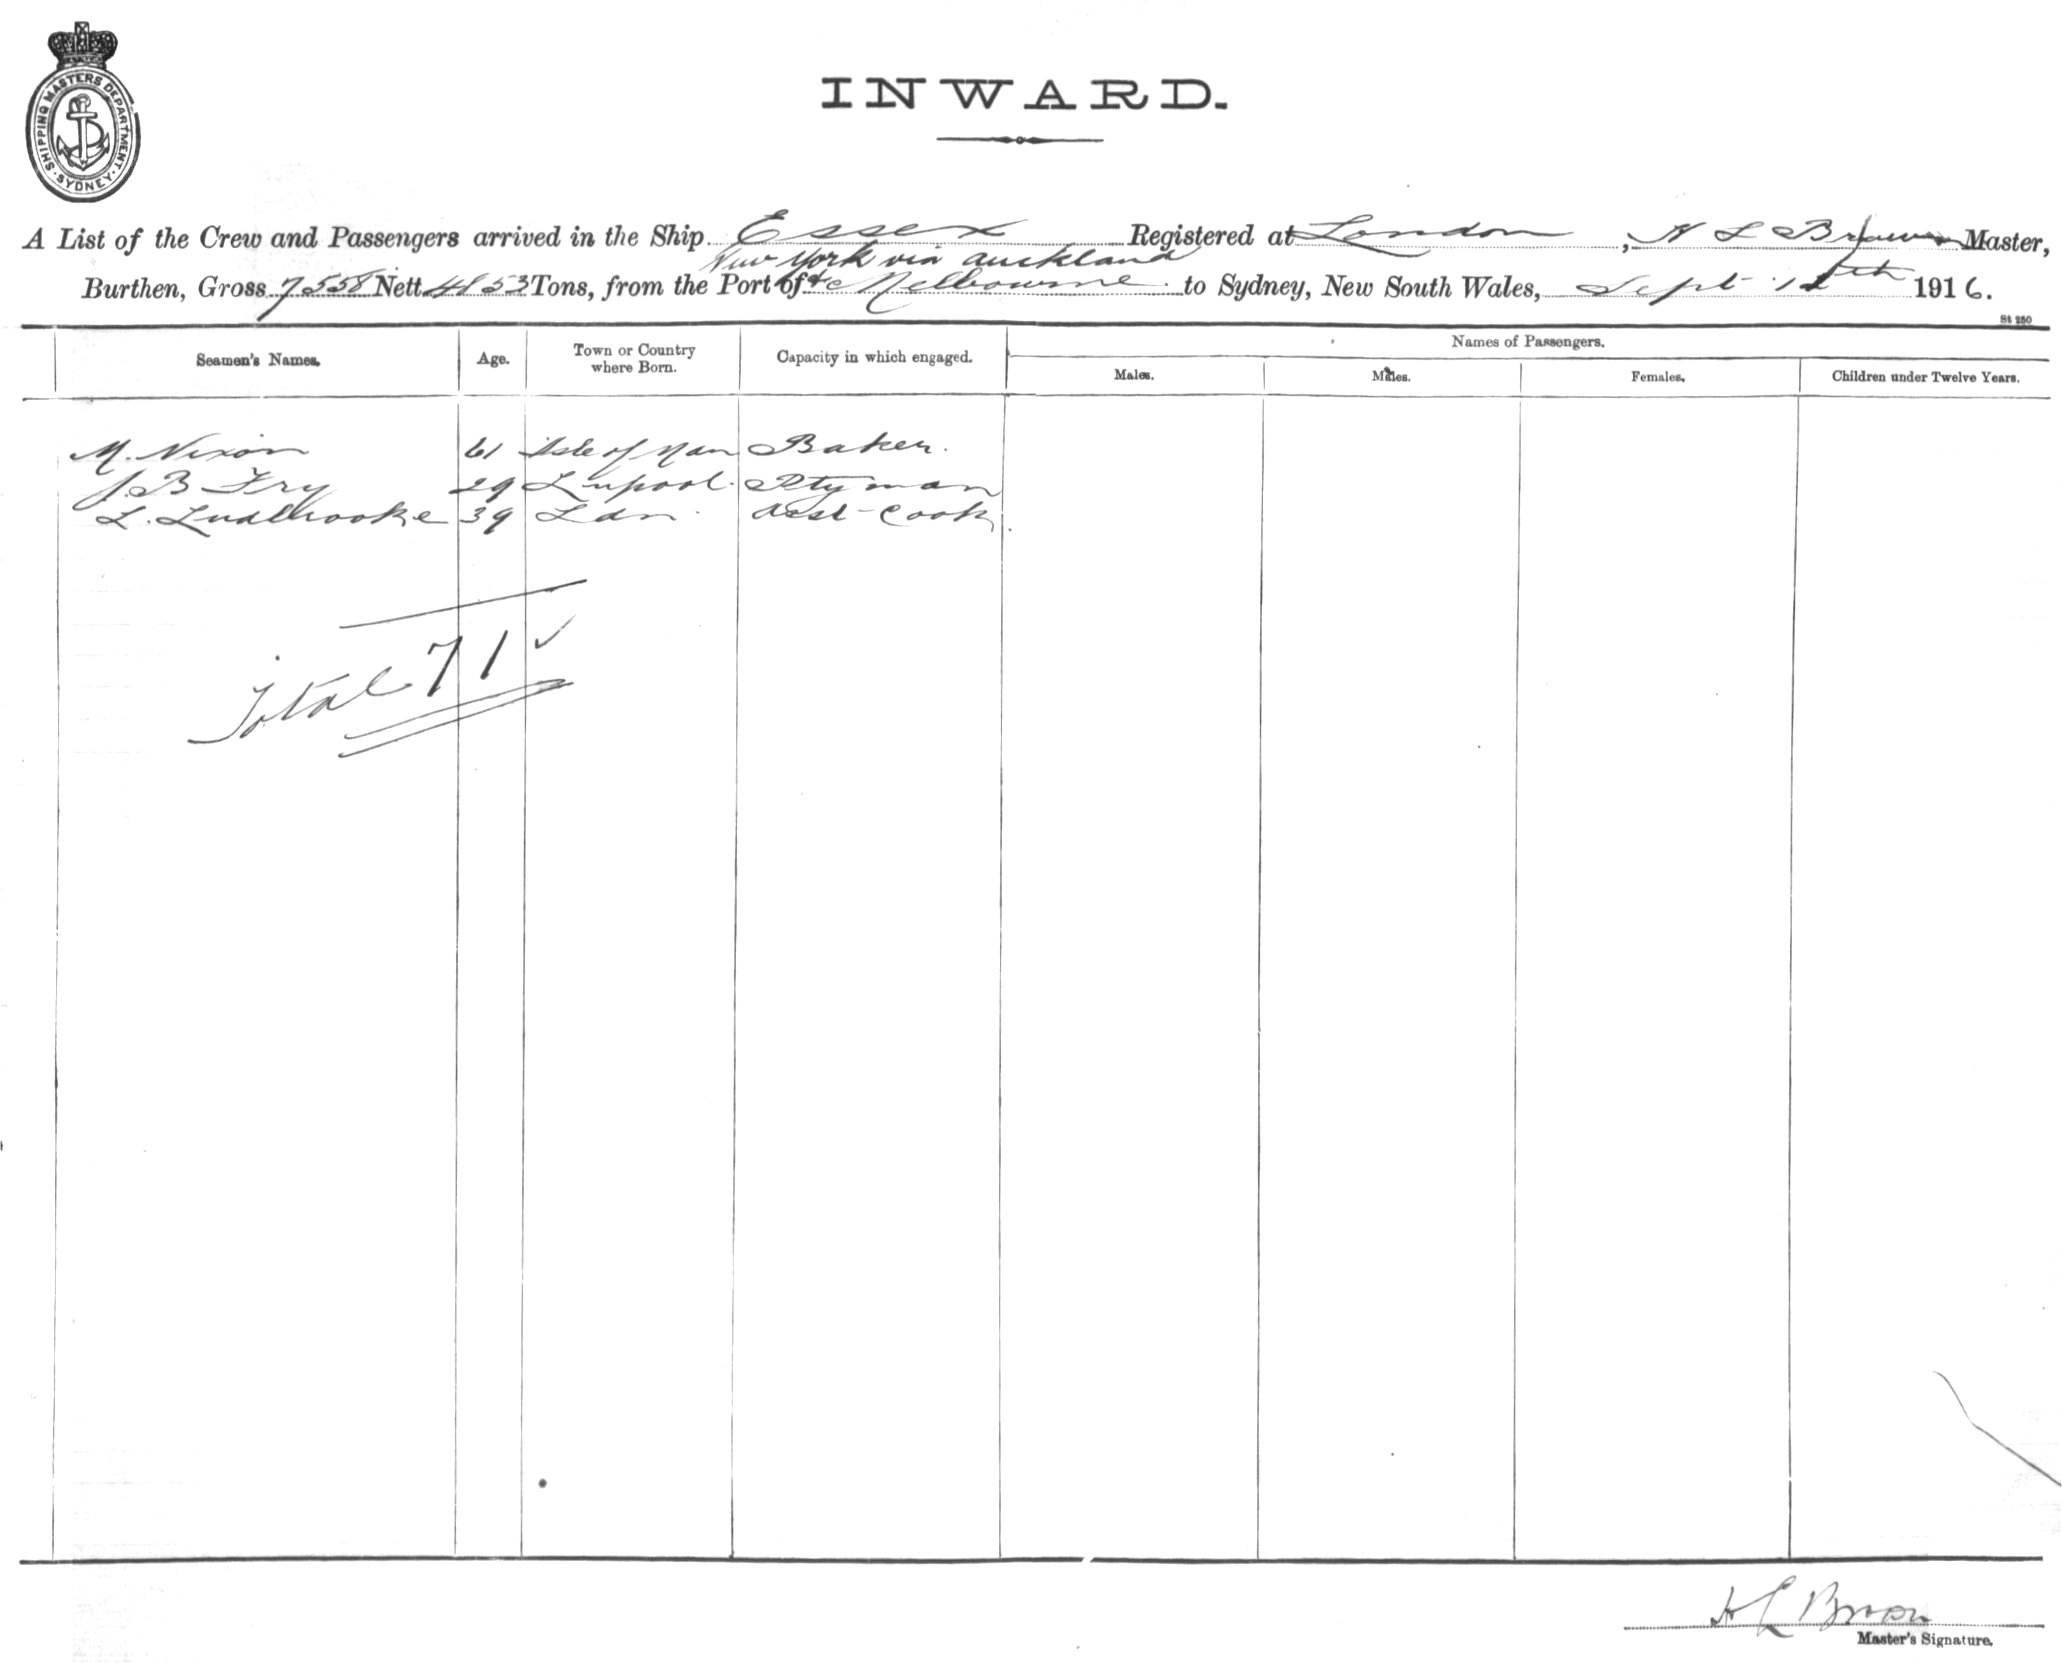 SHIPPING MASTERS DEPARTMENT · SYDNEY ·
INWARD.
A List of the Crew and Passengers arrived in the Ship Essex Registered at London, H L Brown Master,
New York via Auckland
Burthen, Gross 7558 Nett 4853 Tons, from the Port of & Melbourne to Sydney, New South Wales, Sept 12th 1916.
St 280
Seamen's Names. Age. Town or Country where Born. Capacity in which engaged. Names of Passengers.
Males. Males. Females. Children under Twelve Years.
M. Nixon 61 Isle of Man Baker.
J. B Fry 29 L'pool. Stg man
L. Ludbrooke 39 Ldn. Asst-Cook
Total 71
H L Brown
Master's Signature.